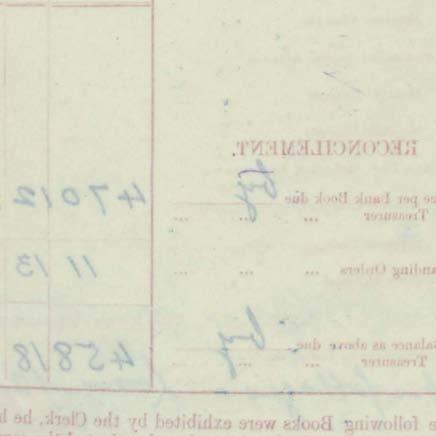 RECONCILEMENT.
ce per Bank Book due by 470 12
Treasurer ... ... ...
anding Orders ... ... ... 11 13
Balance as above due by 458 18
Treasurer ... ... ...
e following Books were exhibited by the Clerk, he h